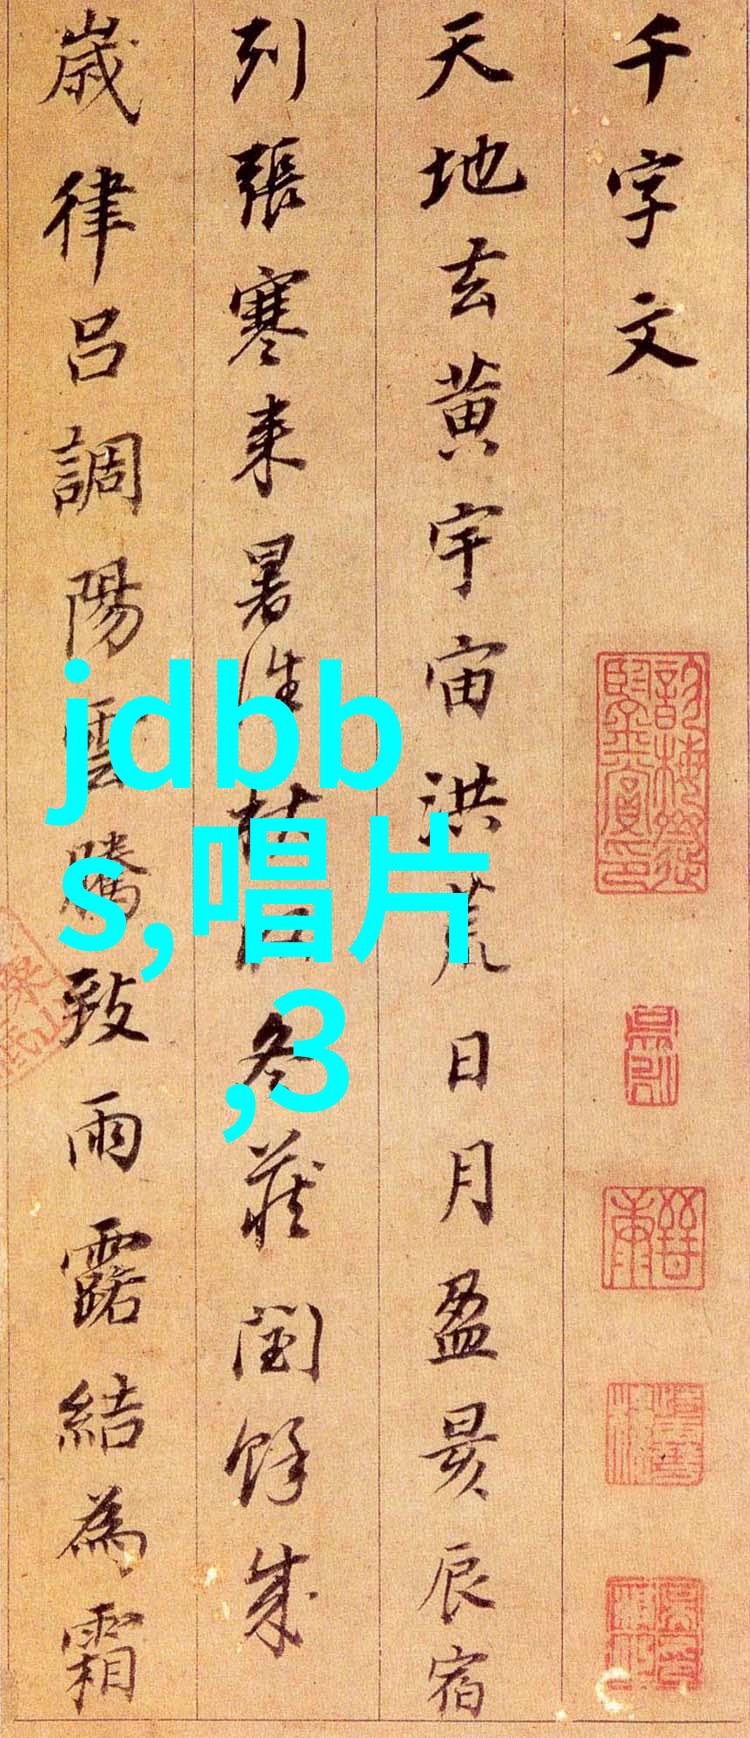 千字文
天地玄黄宇宙洪荒日月盈昃辰宿
列張寒来暑往秋冬蔵閏餘成
歳律呂調陽雲騰致雨露結為霜
jdbb
s,唱片
,3